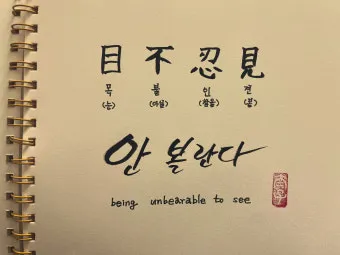 目 不 忍 見
목 불 인 견
(눈) (아닐) (참을) (볼)
안 볼란다
being unbearable to see